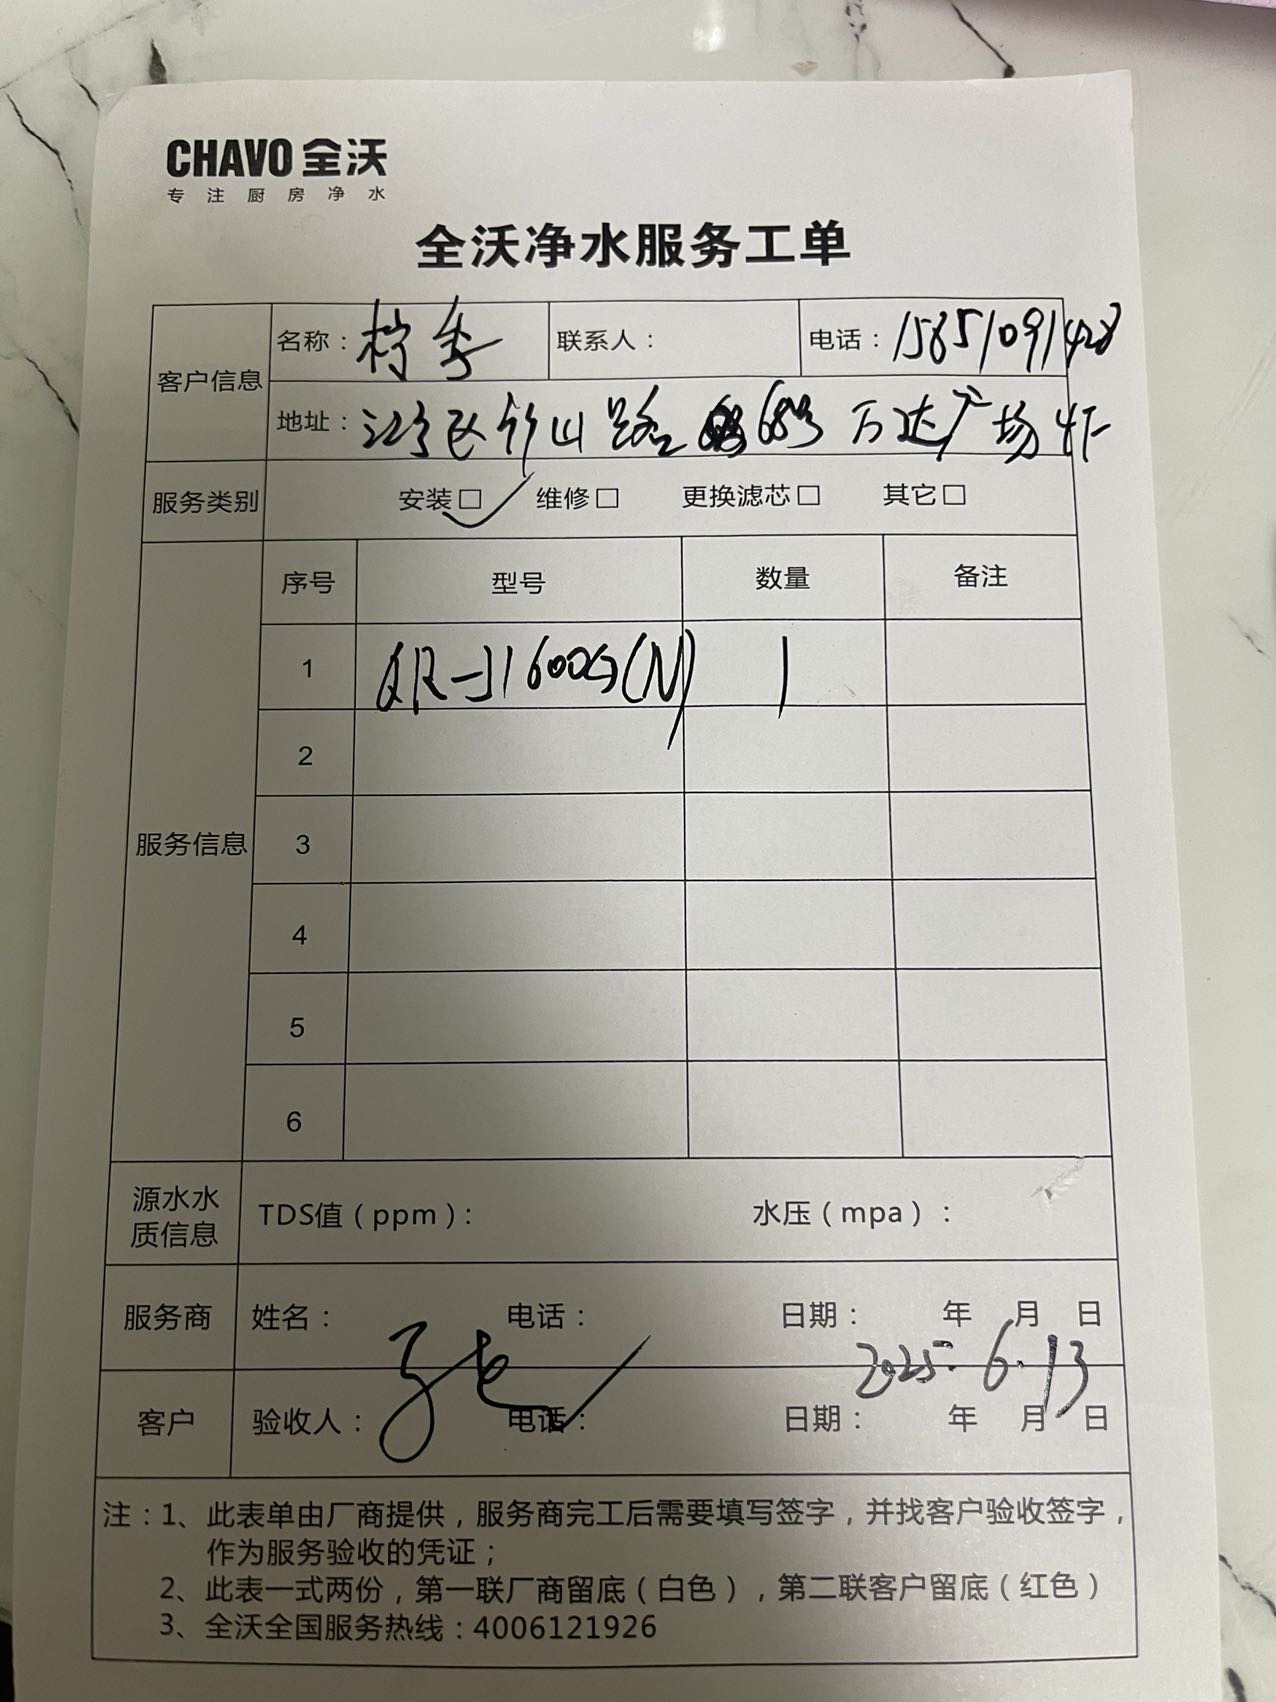 CHAVO 全沃
专注厨房净水
全沃净水服务工单
客户信息
名称：柠季 联系人： 电话：15851091428
地址：江宁区竹山路68号万达广场4F
服务类别 安装□✓ 维修□ 更换滤芯□ 其它□
服务信息
序号 型号 数量 备注
1 QR-J1600G(N) 1
2
3
4
5
6
源水水质信息 TDS值（ppm）： 水压（mpa）：
服务商 姓名： 电话： 日期： 年 月 日
2025.6.13
客户 验收人： 电话： 日期： 年 月 日
注：1、此表单由厂商提供，服务商完工后需要填写签字，并找客户验收签字，
作为服务验收的凭证；
2、此表一式两份，第一联厂商留底（白色），第二联客户留底（红色）
3、全沃全国服务热线：4006121926